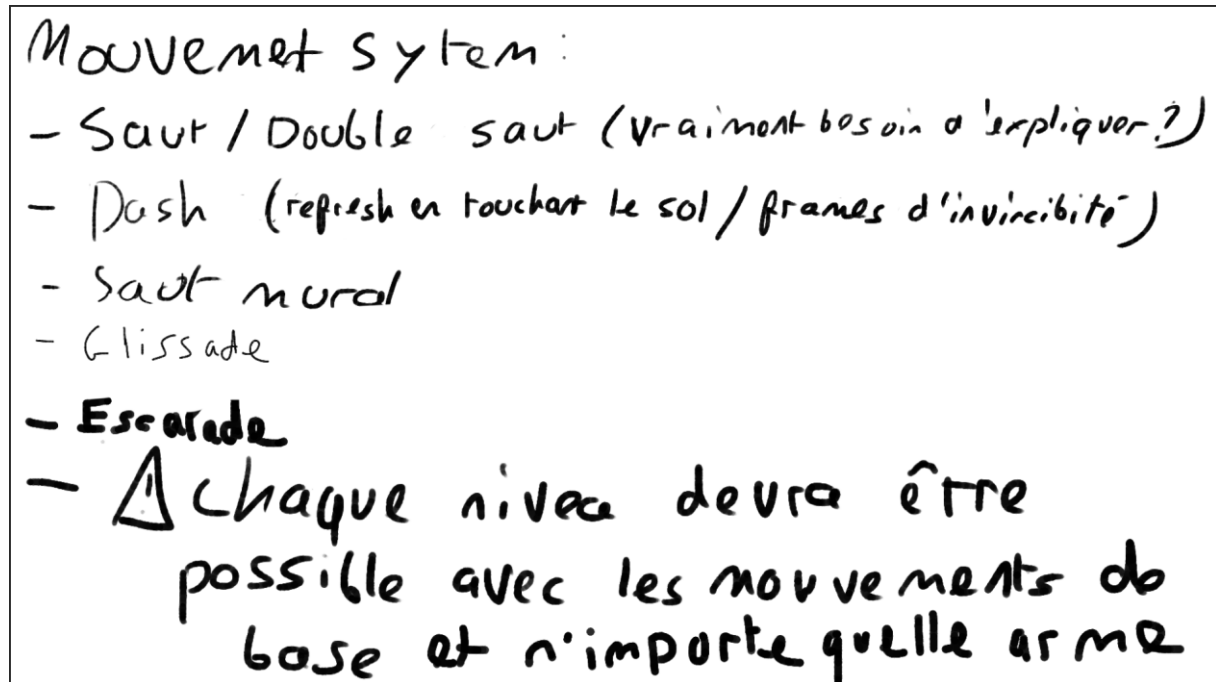 Mouvemet Sytem :
- Saut / Double saut (vraiment besoin d'expliquer ?)
- Dash (refresh en touchant le sol / frames d'invincibité)
- Saut mural
- Glissade
- Escarade
- ⚠ chaque nivea devra être
possible avec les mouvements de
base et n'importe quelle arme